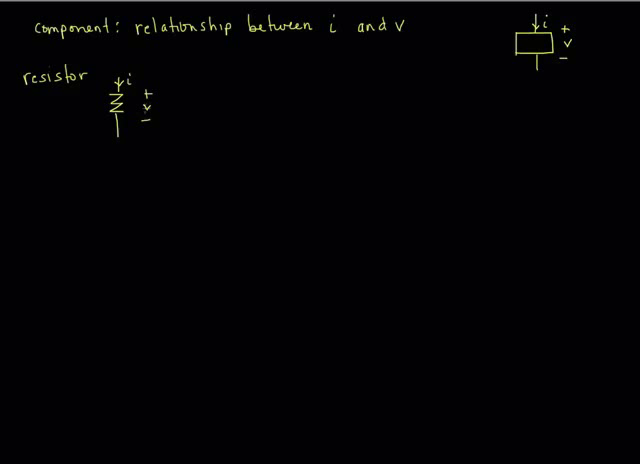 component: relationship between i and v
i
+
v
-
resistor
i
+
v
-